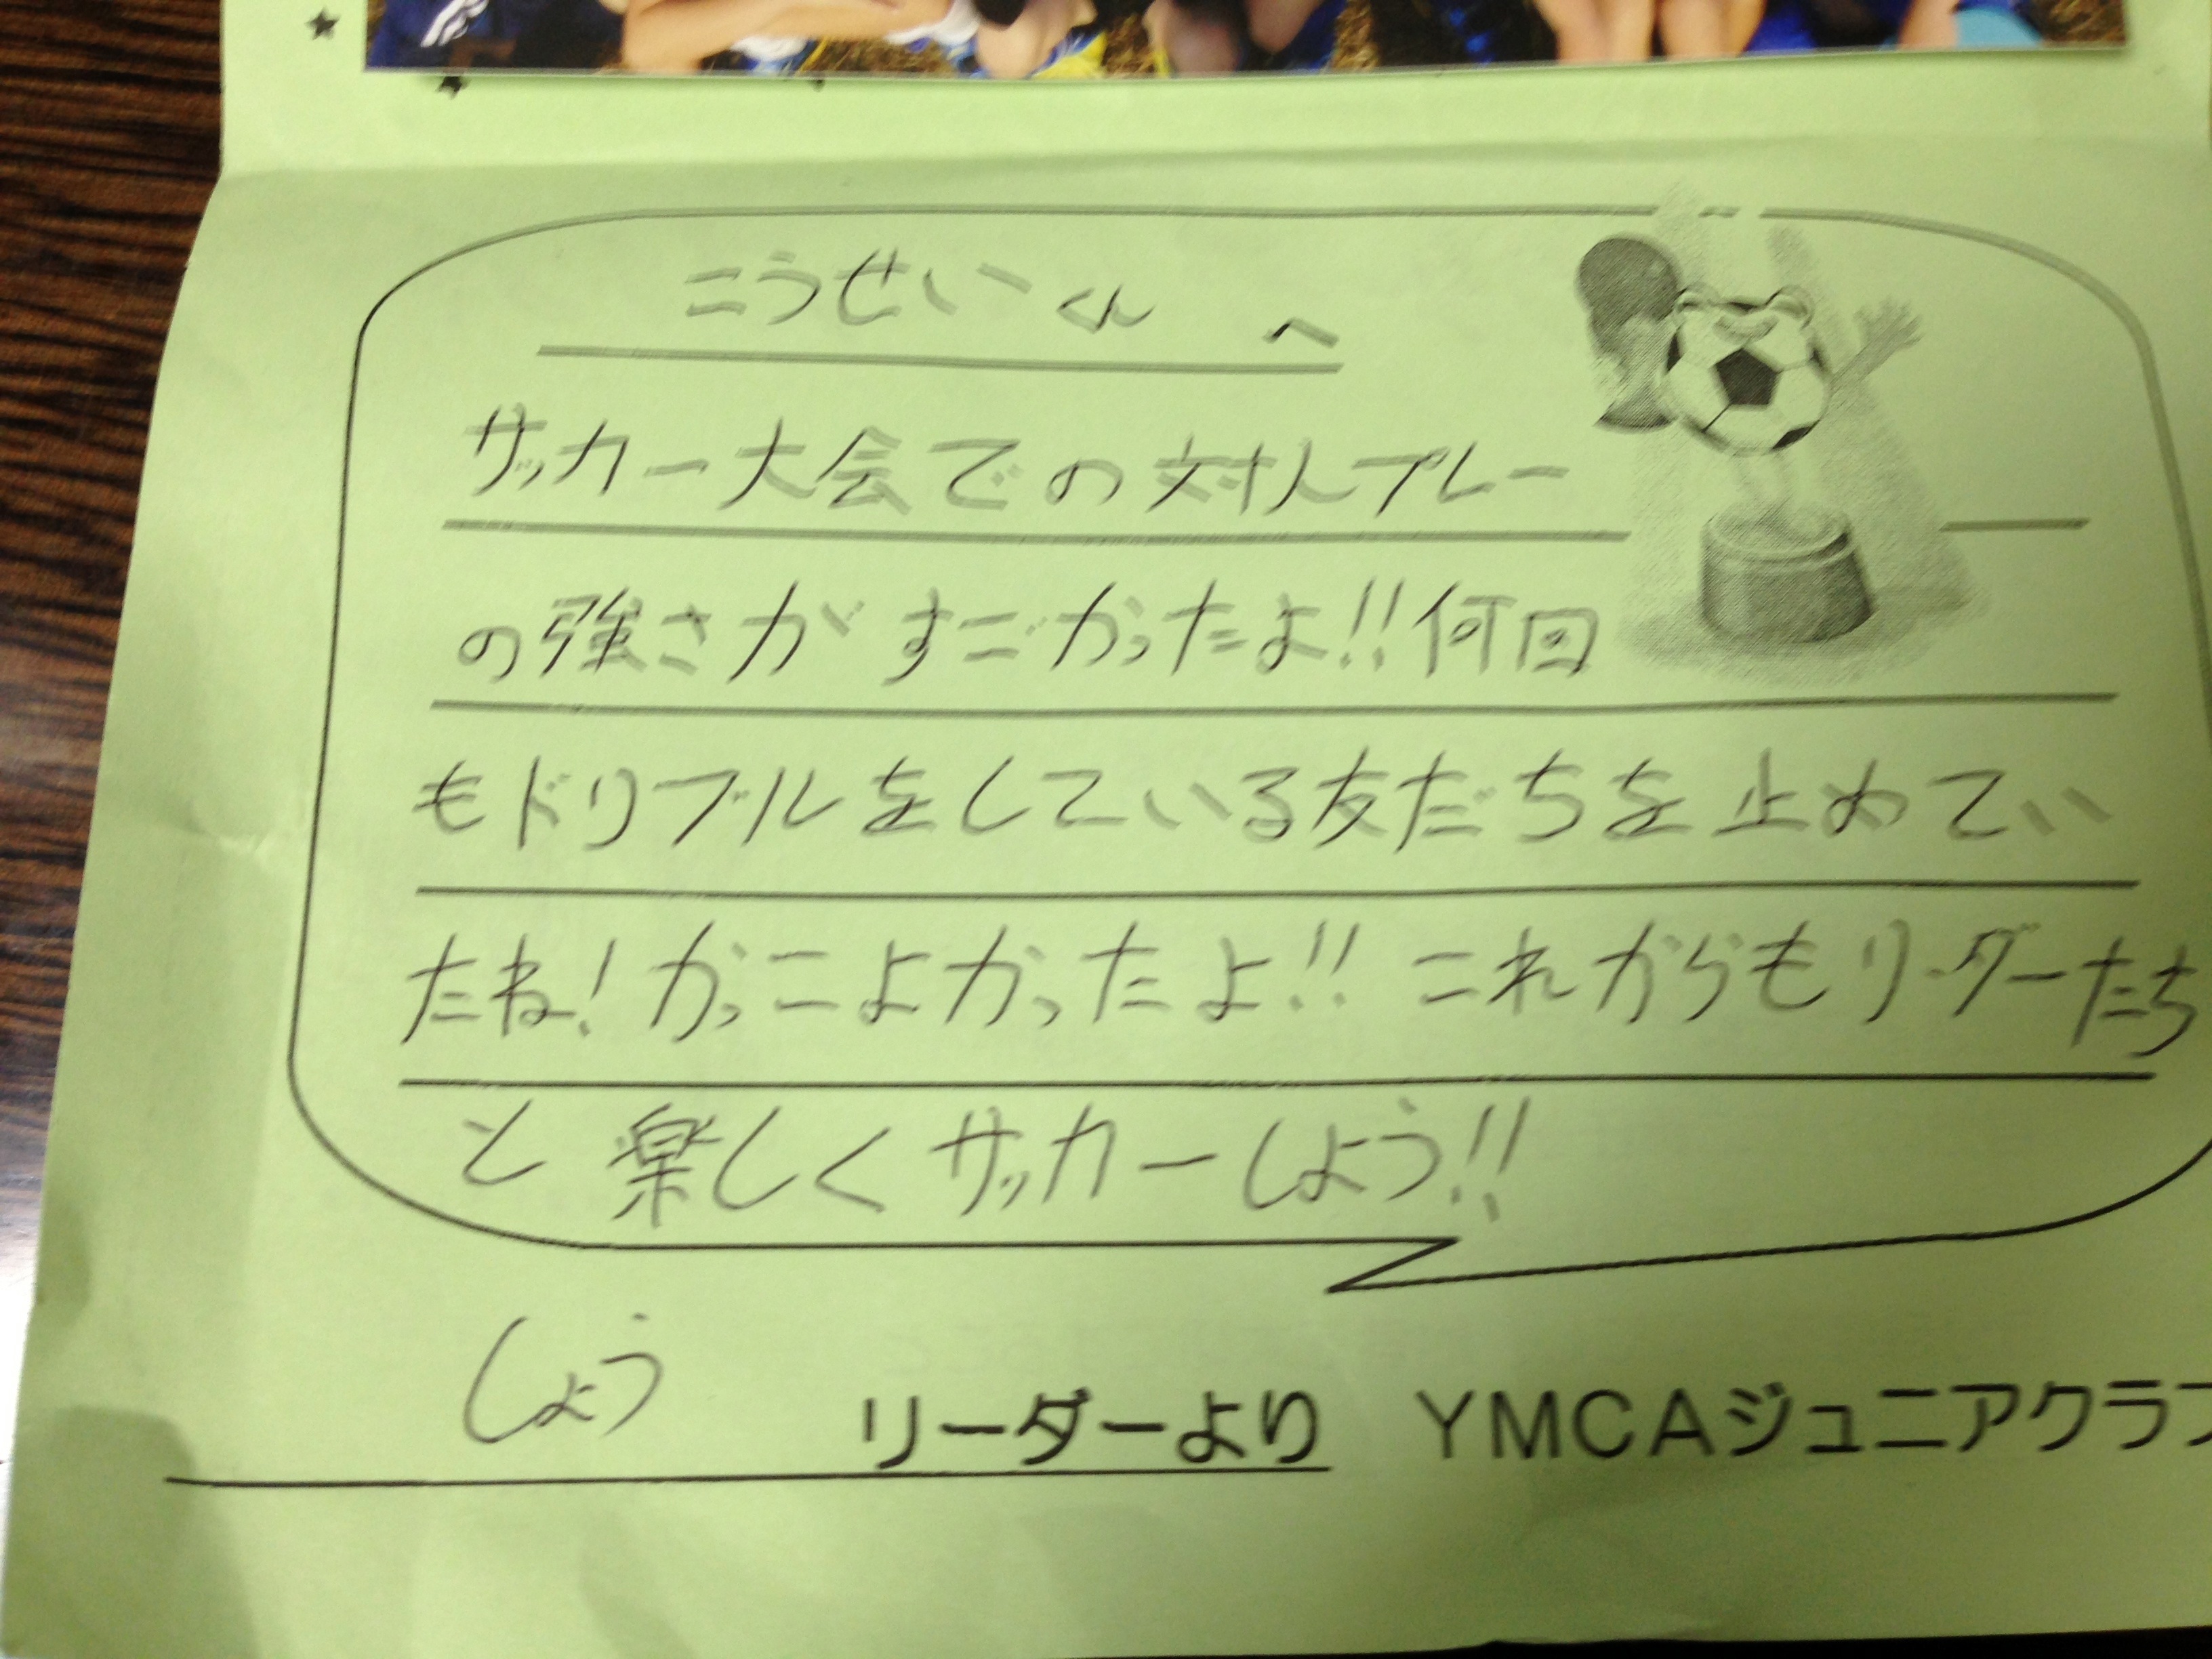 こうせいくん へ
サッカー大会での対人プレー
の強さがすごかったよ!!何回
もドリブルをしている友だちを止めてい
たね!かっこよかったよ!!これからもリーダーたち
と楽しくサッカーしよう!!
しょう リーダーより YMCAジュニアクラブ